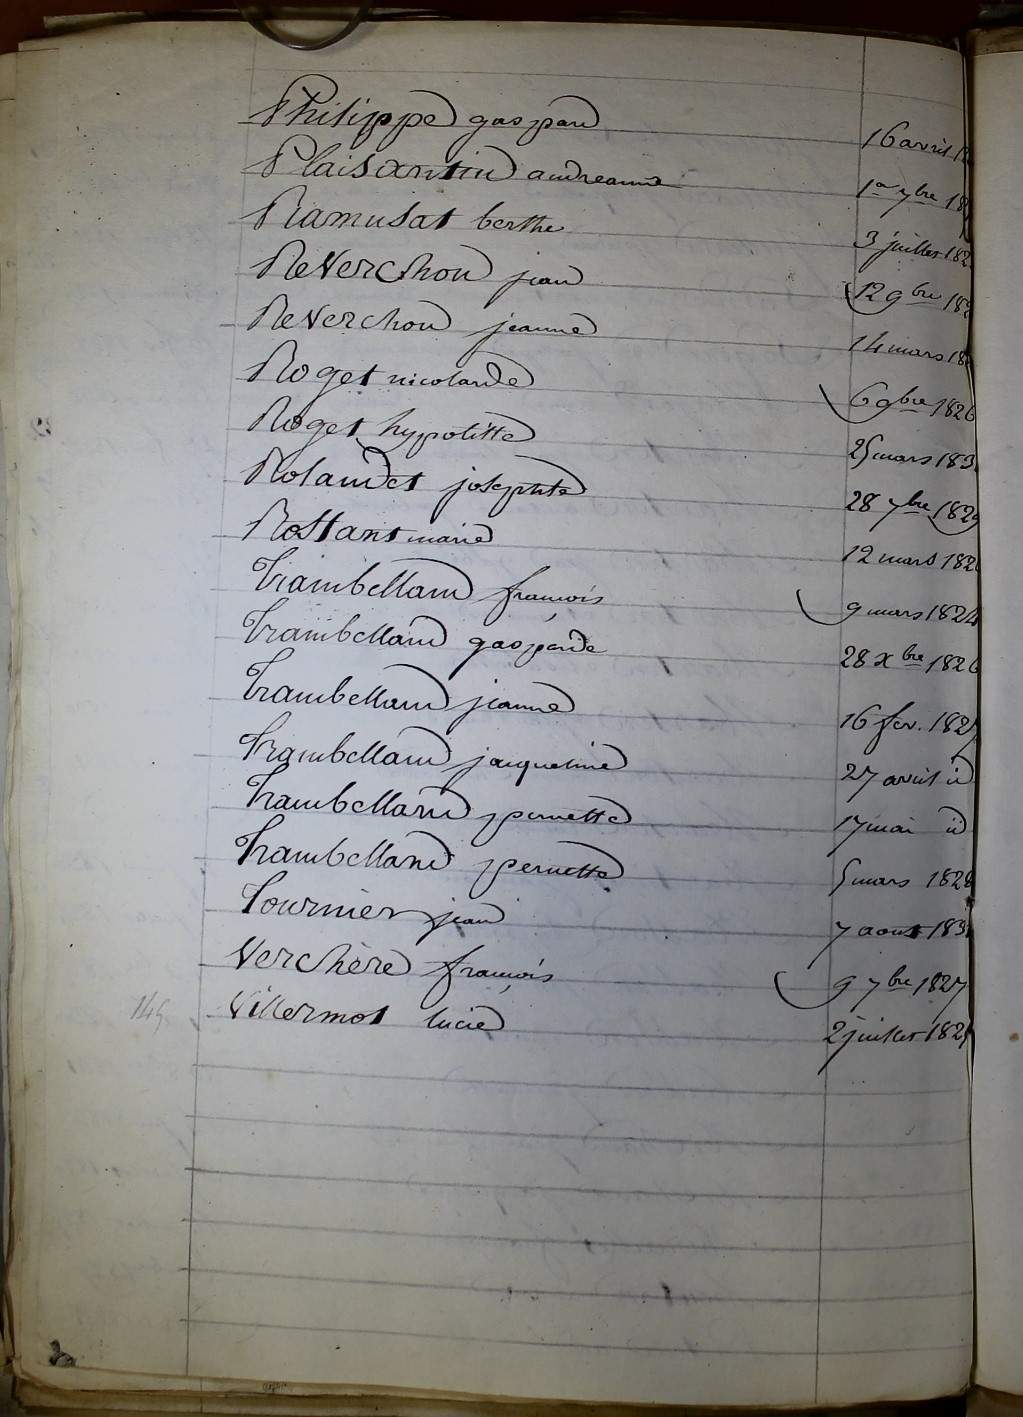 Philippe gaspard 16 avril
Plaisantin andreanne 1er 7bre 18
Ramusat berthe 3 juillet 182
Reverchon jean 12 9bre 182
Reverchon jeanne 14 mars 18
Roget nicolarde 6 9bre 1826
Roget hypolitte 25 mars 183
Rolandet josephte 28 7bre 1829
Rostant marie 12 mars 182
Trambelland francois 9 mars 1824
Trambelland gasparde 28 xbre 1826
Trambelland jeanne 16 fev. 1827
Trambelland jacqueline 27 avril id
Trambelland pernette 17 mai id
Trambelland pernette 5 mars 1828
Tournier jean 7 aout 183
Verchère francois 9 7bre 1827
145 Villermot lucie 2 juillet 182